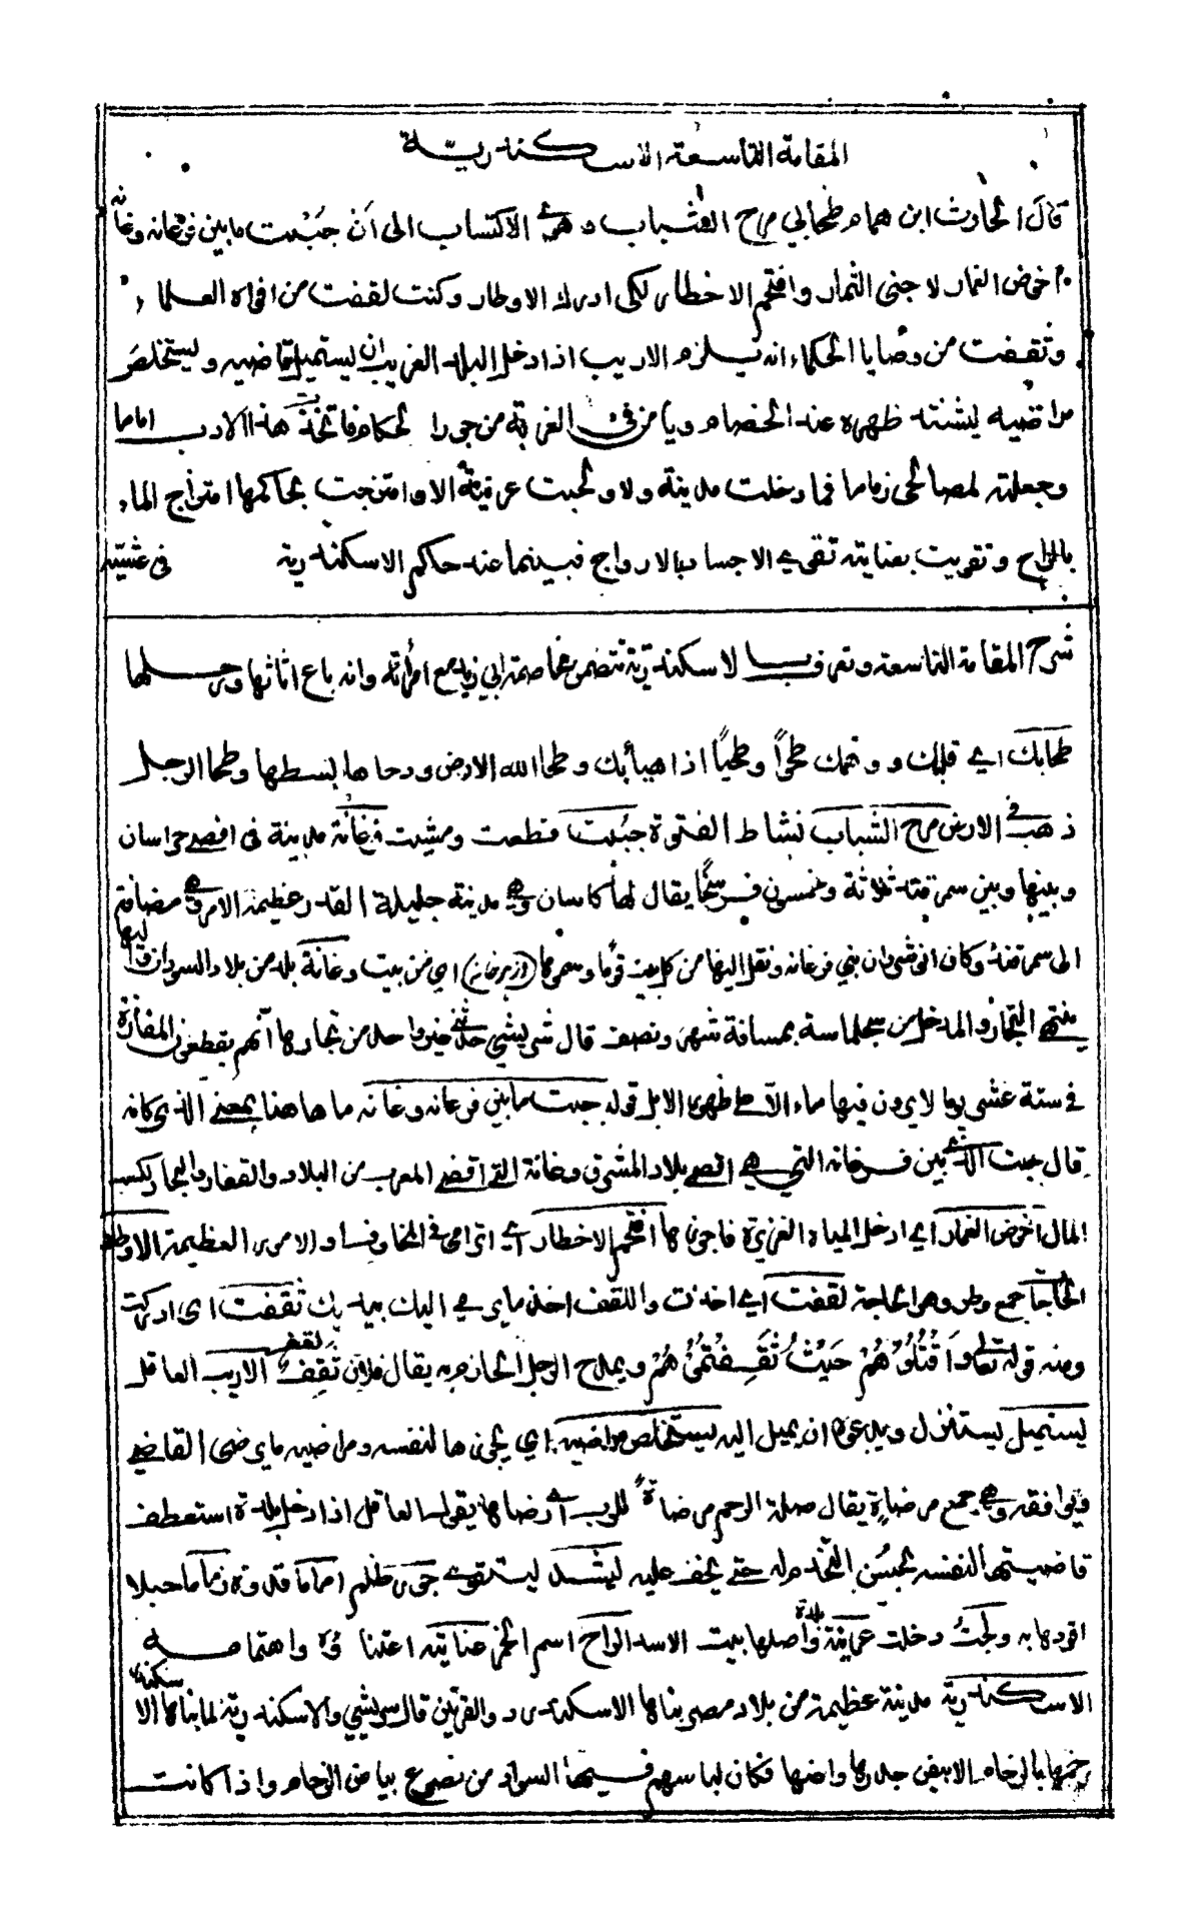 المقامة التاسعة الاسكندرية
قال الحارث ابن همام طحابي مراح الشباب وهوى الاكتساب الى أن جبت مابين فرغانه وغانه
اخوض الغمار لاجنى الثمار واقتحم الاخطار لكى ادرك الاوطار وكنت لقفت من افواه العلما
وثقفت من وصايا الحكماء انه يلزم الاديب اذا دخل البلد الغريب ان يستميل قاضيه ويستخلص
مراضيه ليشتد ظهره عند الخصام ويامن فى الغربة من جور الحكام فاتخذت هذا الادب اماما
وجعلته لمصالحى زماما فما دخلت مدينة ولا ولجت عرينة الا وامتزجت بحاكمها امتزاج الماء
بالراح وتقويت بعنايته تقوي الاجساد بالارواح فبينما عند حاكم الاسكندرية فى عشية
شرح المقامة التاسعة وتعرف بالاسكندرية تتضمن مخاصمة ابي زيد مع امرأته وانه باع اثاثها ورحلها
طحابك اي قلبك ووهمك طحوًا وطحيًا اذا هبأ بك وطحا الله الارض ودحاها بسطها وطحا الرجل
ذهب في الارض مراح الشباب نشاط الفتوة جبت قطعت ومشيت فرغانة مدينة فى اقصى خراسان
وبينها وبين سمرقند ثلاثة وخمسون فرسخًا يقال لها كاسان وهي مدينة جليلة القدر عظيمة الامر وهي مضافة
الى سمرقند وكان انوشروان بني فرغانه ونقل اليها من كل بيت قوما وسموها (ازهرخانه) اي من بيت وغانة بلد من بلاد السودان واليها
ينتهى التجار والمدخل من سجلماسة بمسافة شهر ونصف قال شريشي حدثني غير واحد من تجارها انهم يقطعون المفازة
في ستة عشر يوما لايرون فيها ماء الا على ظهر الابل قوله جبت مابين فرغانه وغانه ما هاهنا بمعني الذى كانه
قال جبت الذي بين فرغانه التي هي اقصى بلاد المشرق وغانة التى اقصى المغرب من البلاد والقفار والبحار لكسب
المال اخوض الغمار اي ادخل المياه الغزيرة فاجوزها اقتحم الاخطار اي اترامى في المخاوف والامور العظيمة الاوطار
الحاجات جمع وطر وهو الحاجة لقفت اي اخذت واللقف اخذ مايرمي اليك بيدك ثقفت اى ادركت
ومنه قوله تعالى واقْتُلُوْهُمْ حَيْثُ ثَقِفْتُمُوْهُمْ ويمدح الرجل الحازم به يقال فلان ثقف لقف الاديب العاقل
يستميل يستنزل ويدعوه ان يميل اليه يستخلص مراضيه اي يجوزها لنفسه ومراضيه مايرضى القاضي
ويوافقه وهي جمع مرضاة يقال صلة الرحم مرضاة للرب اي رضا له يقول العاقل اذا دخل بلدة استعطف
قاضيها لنفسه بحسن التخدم له حتى يخف عليه ليشتد ليتقوى جور ظلم اماما قدوة زماما حبلا
اقودها به ولجت دخلت عرينة بلدة واصلها بيت الاسد الراح اسم الخمر عنايته اعتناؤه واهتمامه
الاسكندرية مدينة عظيمة من بلاد مصر بناها الاسكندر ذو القرنين قال شريشي والاسكندرية لما بناها الاسكندر
رخمها بالرخام الابيض جدرها وارضها فكان لباسهم فيها السواد من نصوع بياض الرخام واذا كانت